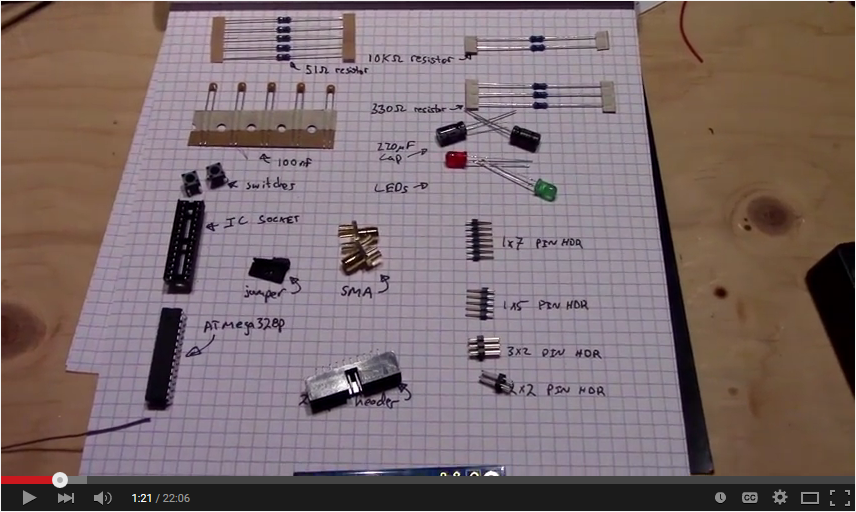 51Ω resistor
10KΩ resistor
330Ω resistor
100nf
220µF
cap
switches
LEDs
IC SOCKET
1x7 PIN HDR
jumper
SMA
1x5 PIN HDR
ATmega328p
3x2 PIN HDR
2x2 PIN HDR
header
1:21 / 22:06
CC